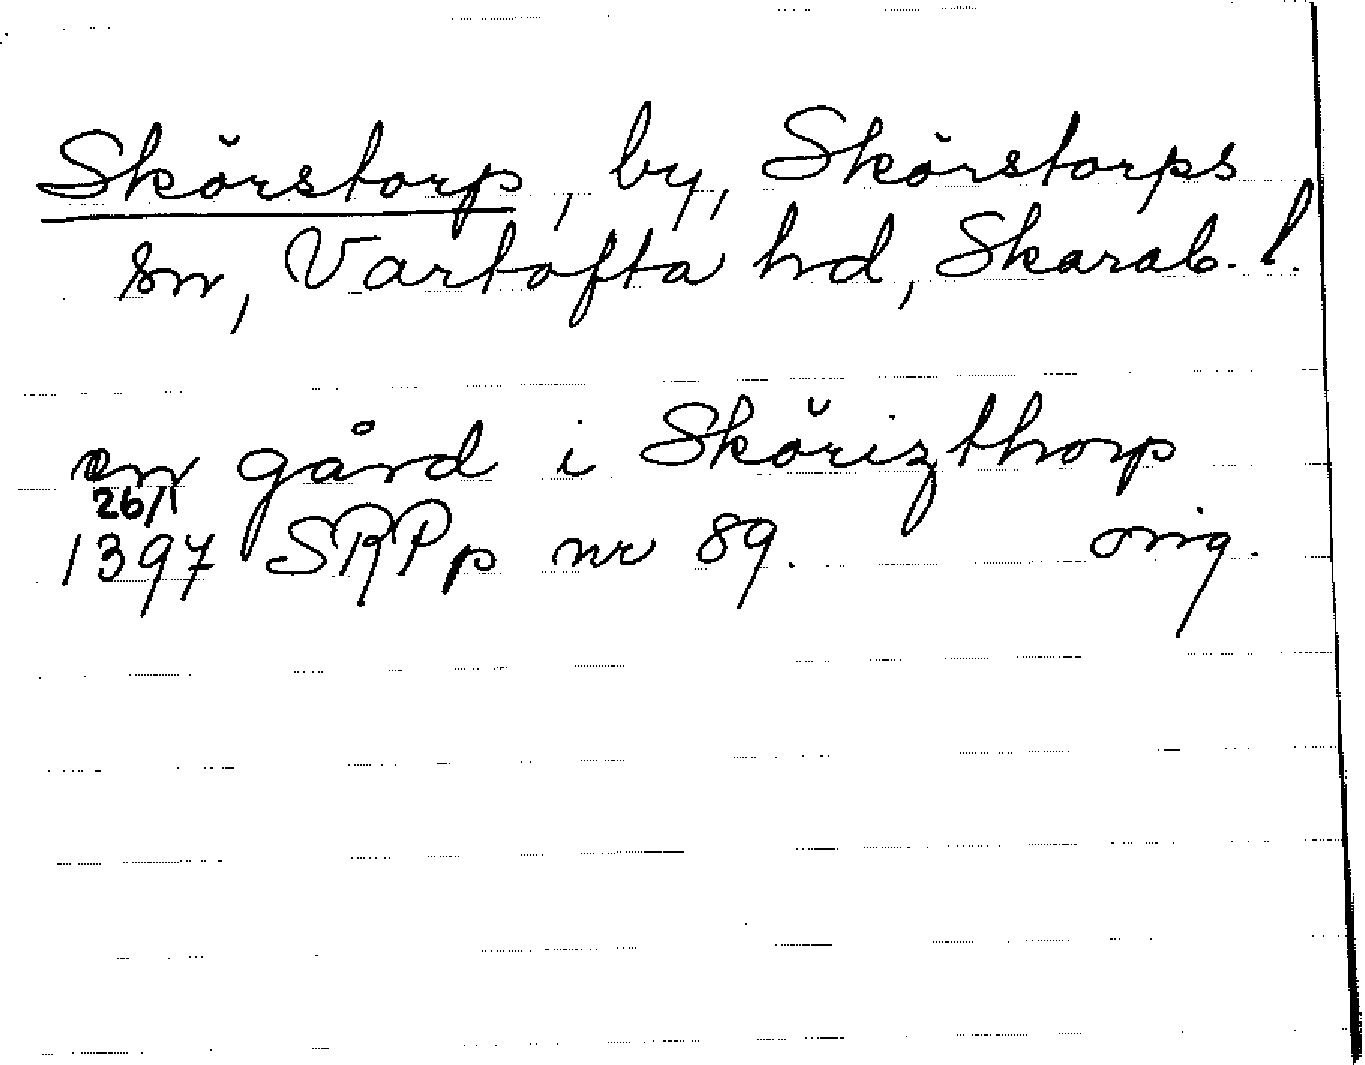 Skörstorp, by, Skörstorps
sn, Vartofta hd, Skarab. l.
en gård i Skörizthorp
26/1
1397 SRPp nr 89. orig.